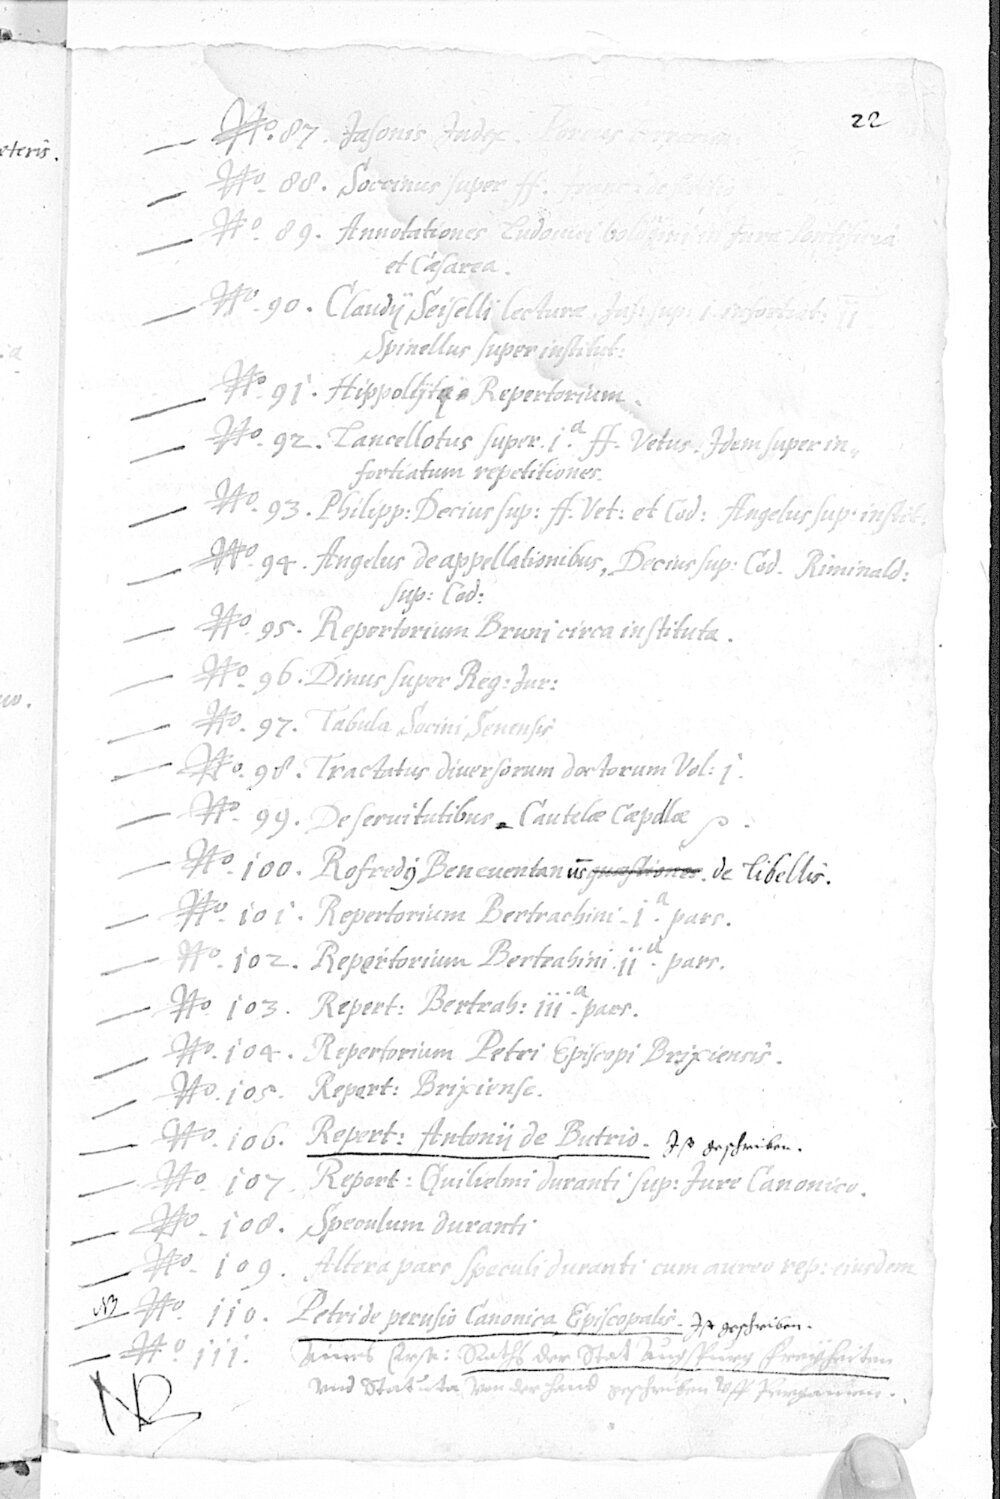 22
eteris.
No. 87. Jasonis Index.
No. 88. Soccinus super ff.
No. 89. Annotationes Ludovici bolognini in Jura Pontificia
et Cæsarea.
No. 90. Claudij Seiselli lecturæ
Spinellus super institut:
No. 91. Repertorium.
No. 92. Lancellotus super. i.a ff. Vetus. Idem super in„
fortiatum repetitiones.
No. 93. Philipp: Decius sup: ff. Vet: et Cod: Angelus sup: instit:
No. 94. Angelus de appellationibus, Decius sup: Cod. Riminald:
sup: Cod:
No. 95. Repertorium Bruni circa instituta.
No. 96. Dinus super Reg: Jur:
No. 97. Tabula Socini Senensis
No. 98. Tractatus diversorum doctorum Vol: i.
No. 99. De servitutibus. Cautelæ Cæpollæ
No. 100. Rofredij Beneventanus quæstiones. de Libellis.
No. 101. Repertorium Bertrachini. i.a pars.
No. 102. Repertorium Bertrahini. ii.a pars.
No. 103. Repert: Bertrah: iii.a pars.
No. 104. Repertorium Petri Episcopi Brixiensis.
No. 105. Repert: Brixiense.
No. 106. Repert: Antonij de Butrio. Ist geschriben.
No. 107. Repert: Guilielmi duranti sup: Jure Canonico.
No. 108. Speculum duranti
No. 109. Altera pars speculi duranti cum aureo rep: eiusdem
NB No. 110. Petri de perusio Canonica Episcopalis. Ist geschriben.
No. 111. Eines Ers: Raths der Stat Augspurg freyheiten
vnd Statuta von der hand geschriben vff Pergamen.
NB